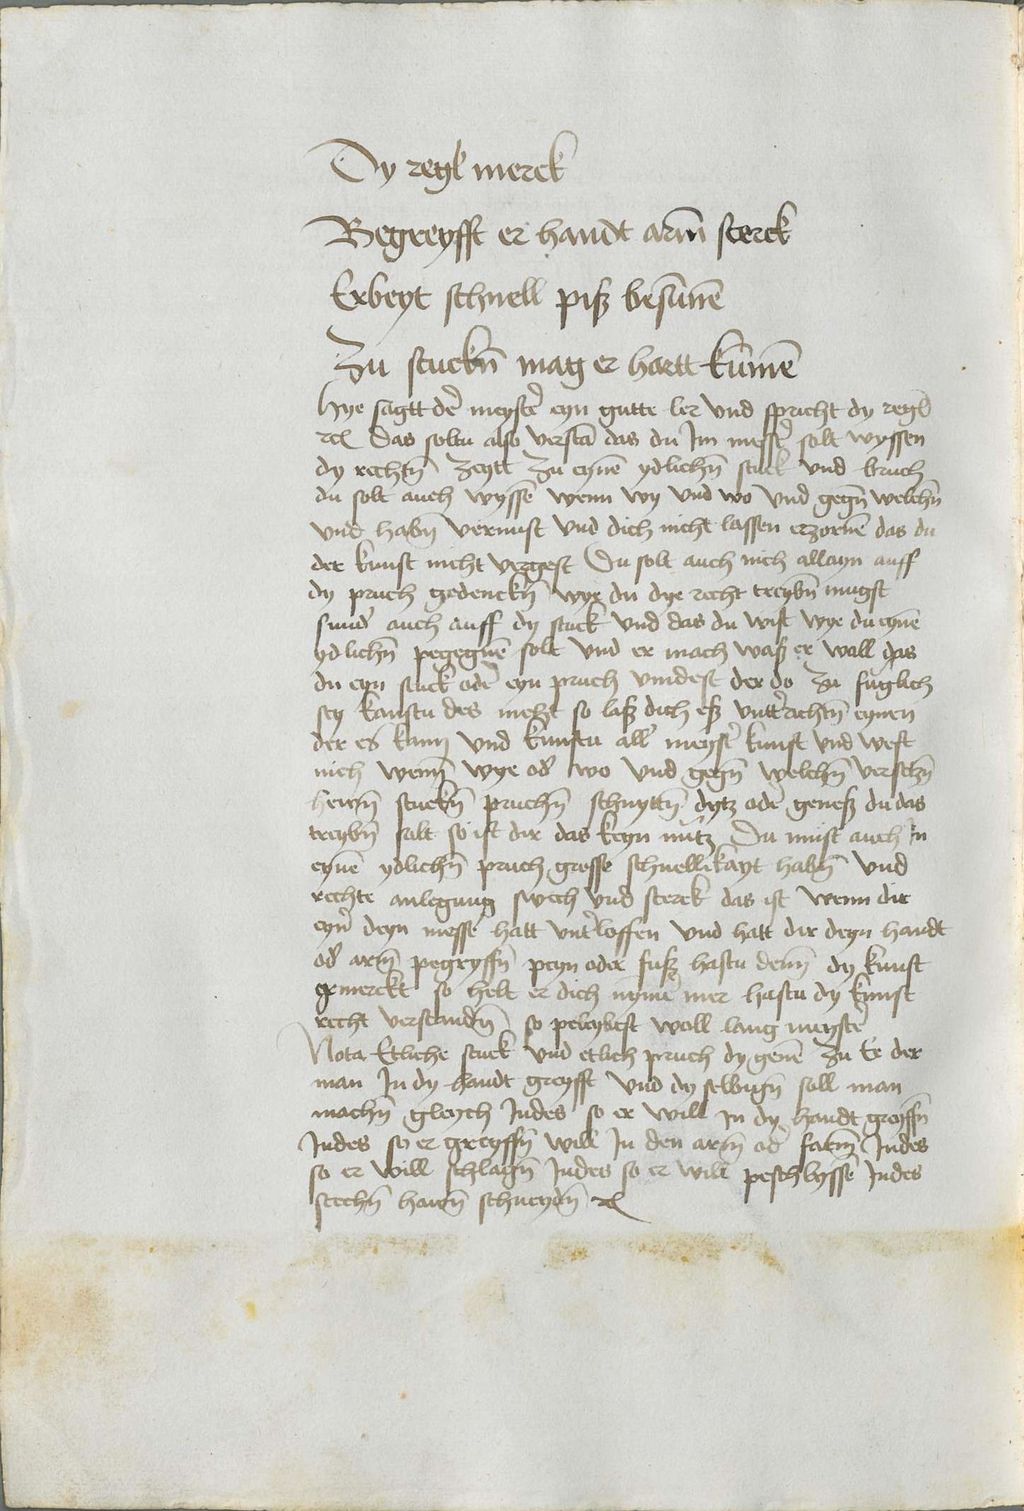 Dy regl merck
Begreyfft er handt arm̄ sterck
Erbeyt schnell piß besūnē
Zu stuckn̄ mag er hartt kūmē
Hye sagtt der meyster eyn gutte ler vnd spricht dy regl
rcl Das soltu also verstā das du Im messer solt wyssen
dy rechtn̄ zeytt zu eynē ydlichn̄ stuck vnd bruch
du solt auch wyssē wenn wy vnd wo vnd gegn̄ welchn̄
vnd habn̄ vernust vnd dich nicht lassen erzornē das du
der kunst nicht vergest Du solt auch nich allayn auff
dy pruch gedenckn̄ wye du dye recht treybn̄ mugst
sunder auch auff dy stuck vnd das du wist wye du eynē
ydlichn̄ pegegnē solt vnd er mach waß er woll das
du eyn stuck oder eyn pruch vindest der do zu fuglich
sey kanstu des nicht so laß dich eß vntterrichtn̄ eynen
der es kann vnd kunstu aller meyster kunst vnd west
nich wenn̄ wye oder wo vnd gegn̄ welchn̄
hewn̄ stuckn̄ pruchn̄ schnyttn̄ dytz oder geneß du das
treybn̄ solt so ist dir das keyn nutz Du must auch In
eynē ydlichn̄ pruch grosse schnellikayt habn̄ vnd
rechte anlegung swech vnd sterck das ist wenn dir
eyner deyn messer hatt vnterloffen vnd hatt dir deyn handt
oder arm̄ pegryffn̄ peyn oder fuß hastu denn̄ dy kunst
gemerckt so helt er dich nymer mer hastu dy kunst
recht verstandn̄ so peleybest woll lang meyster
Nota Etliche stuck vnd etlich pruch dy genē zu Ee der
man In dy handt greyfft vnd dy selbign̄ soll man
machn̄ gleych Indes so er will In dy handt greyffn̄
Indes so er greyffn̄ will In den arm̄ oder Indes
so er will schlagn̄ Indes so er will peschlyssē Indes
stechn̄ hawn̄ schneydn̄ rcl